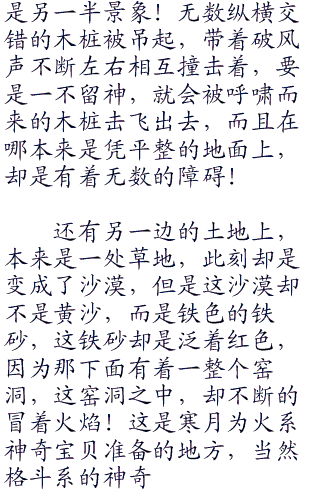 是另一半景象！无数纵横交
错的木桩被吊起，带着破风
声不断左右相互撞击着，要
是一不留神，就会被呼啸而
来的木桩击飞出去，而且在
哪本来是凭平整的地面上，
却是有着无数的障碍！
还有另一边的土地上，
本来是一处草地，此刻却是
变成了沙漠，但是这沙漠却
不是黄沙，而是铁色的铁
砂，这铁砂却是泛着红色，
因为那下面有着一整个窑
洞，这窑洞之中，却不断的
冒着火焰！这是寒月为火系
神奇宝贝准备的地方，当然
格斗系的神奇